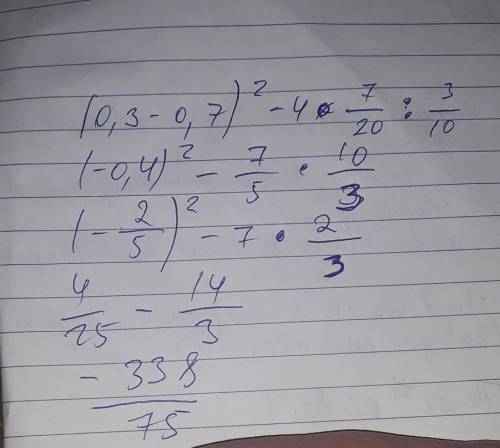 (0,3 - 0,7)² - 4 • 7/20 : 3/10
(-0,4)² - 7/5 • 10/3
(- 2/5)² - 7 • 2/3
4/25 - 14/3
- 338/75